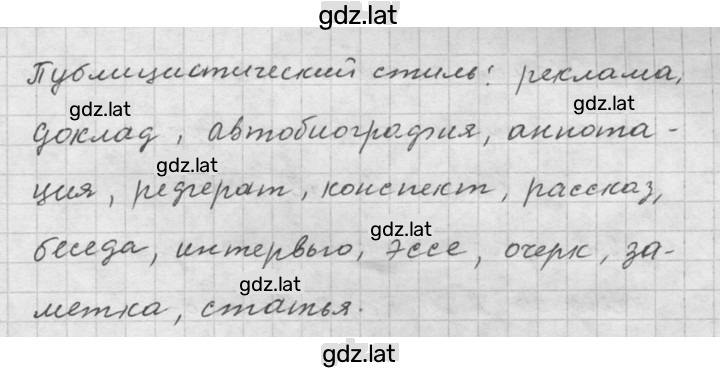 gdz.lat
Публицистический стиль: реклама,
gdz.lat
gdz.lat
доклад, автобиография, аннота-
gdz.lat
ция, реферат, конспект, рассказ,
gdz.lat
беседа, интервью, эссе, очерк, за-
gdz.lat
метка, статья.
gdz.lat